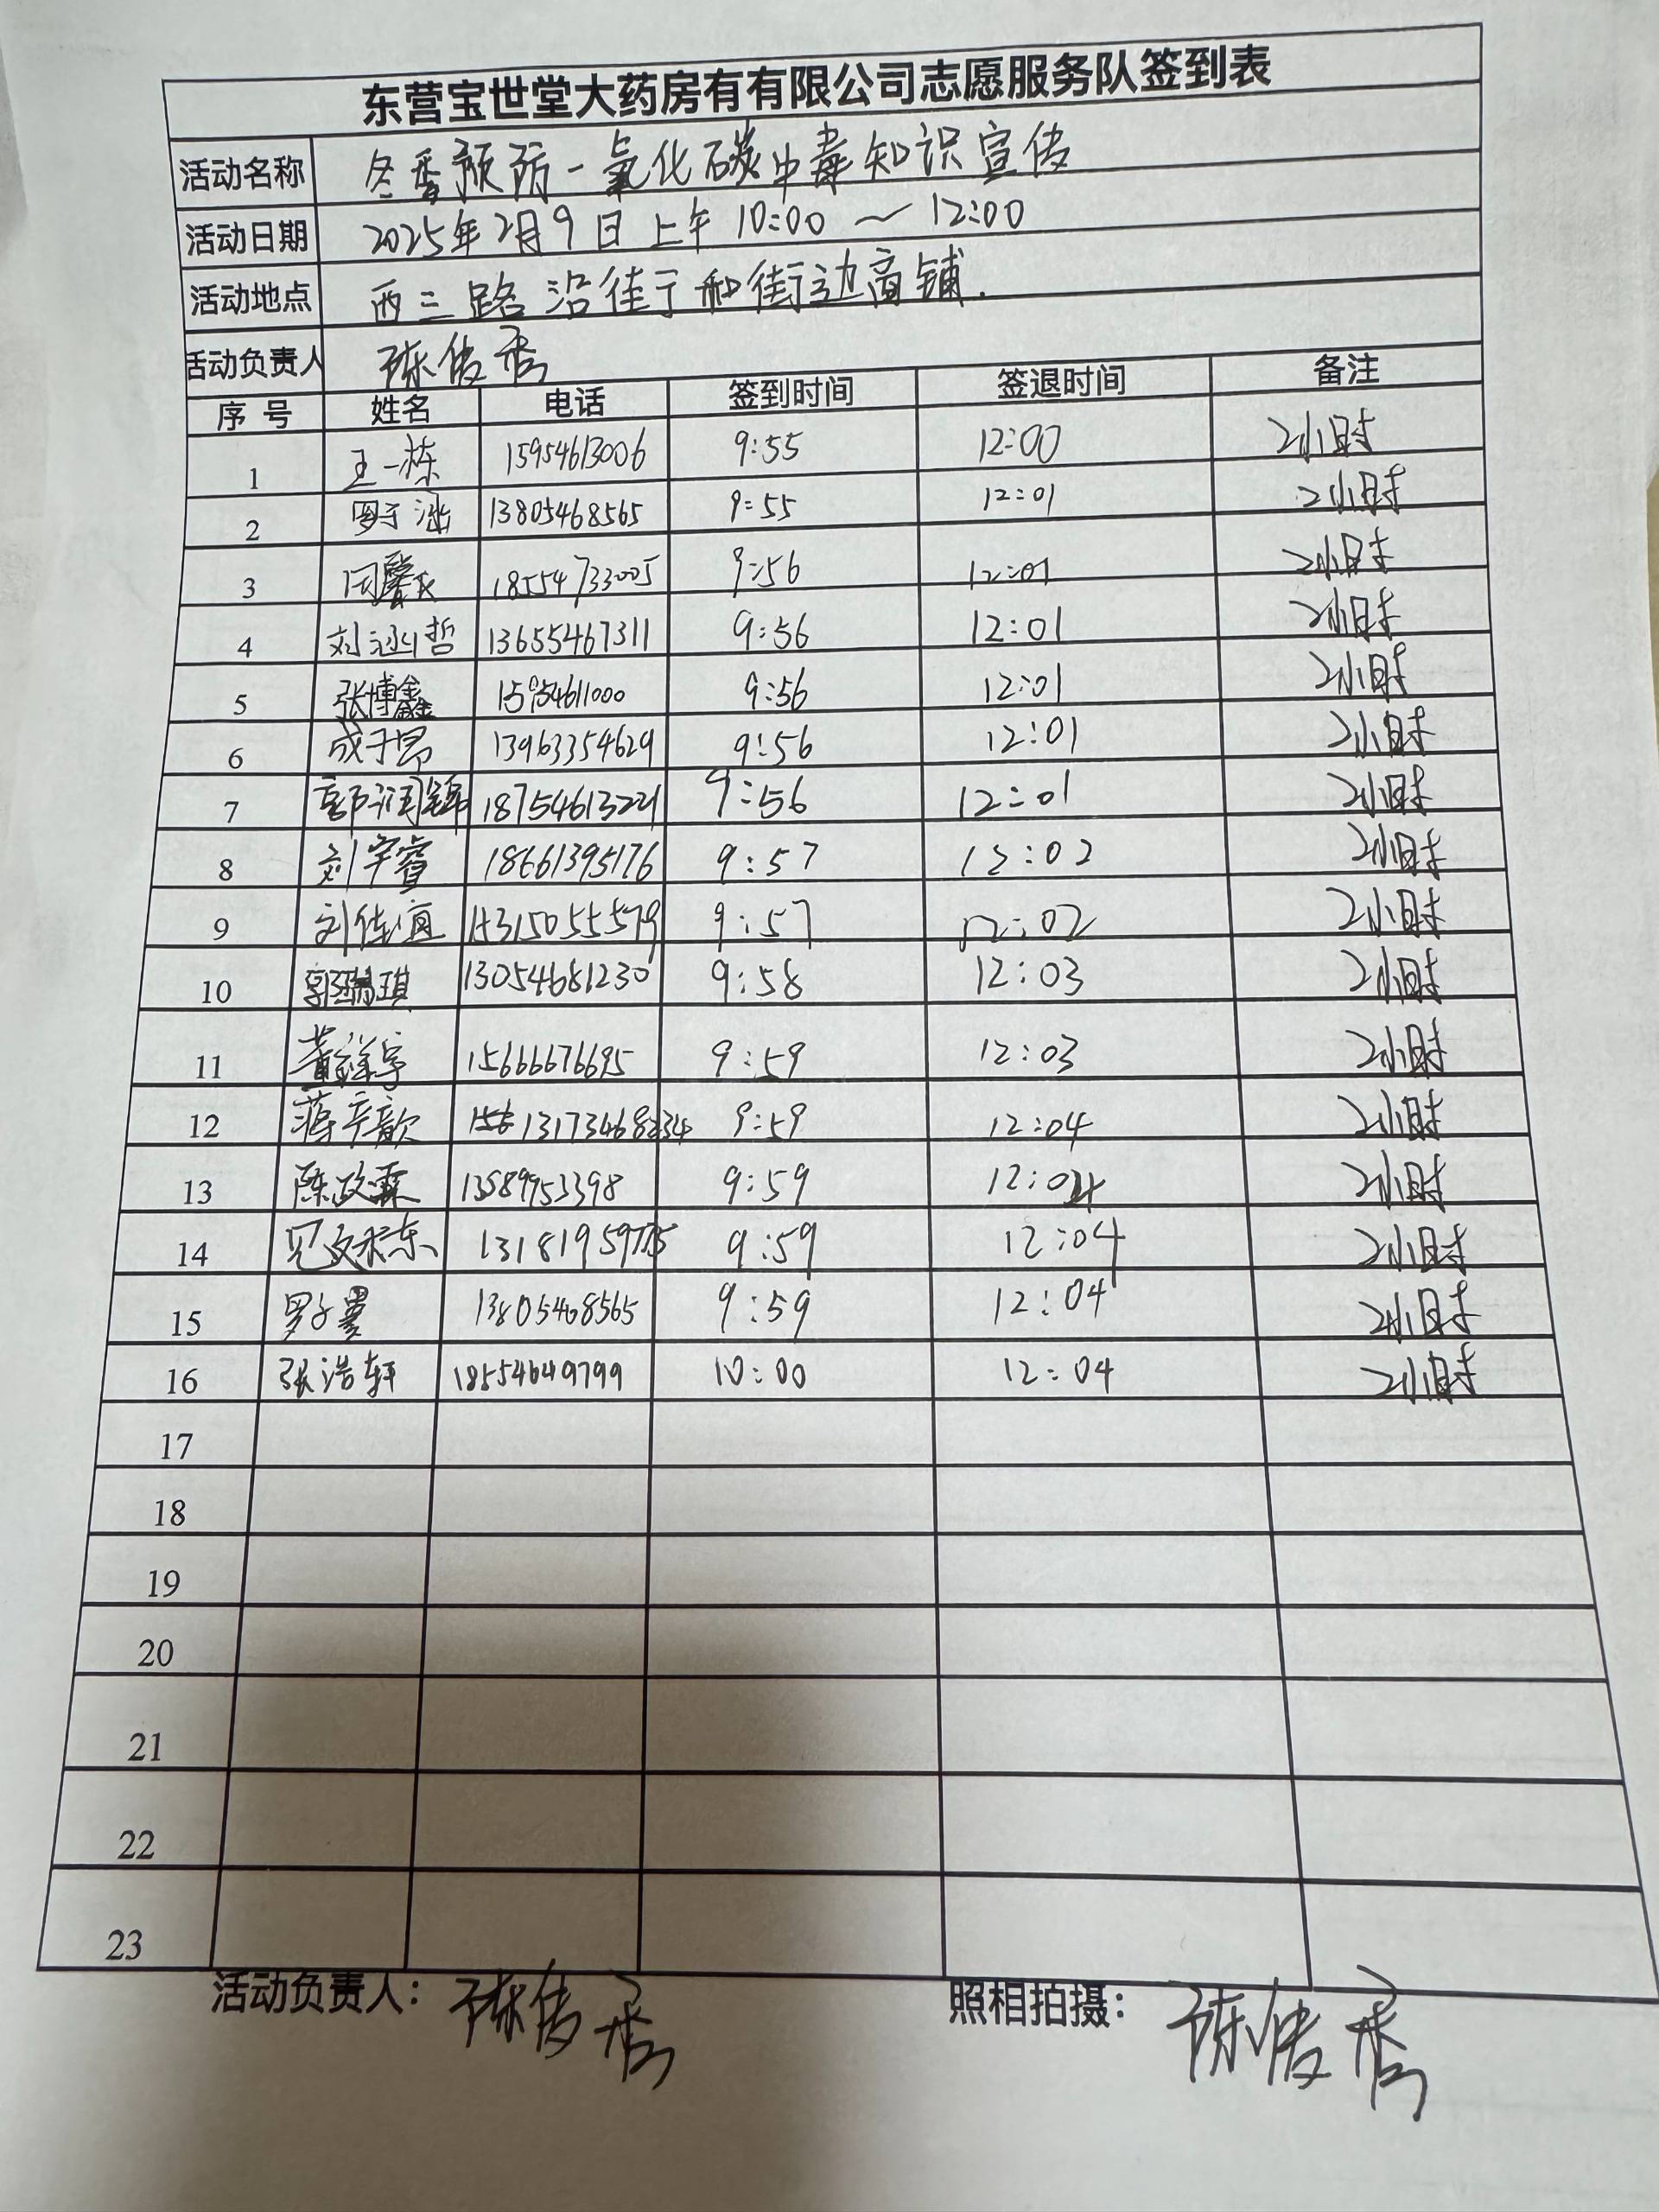 东营宝世堂大药房有有限公司志愿服务队签到表
活动名称 冬季预防一氧化碳中毒知识宣传
活动日期 2025年2月9日上午10:00～12:00
活动地点 西三路沿街和街边商铺.
活动负责人 陈传秀
序号 姓名 电话 签到时间 签退时间 备注
1 王一栋 15954613006 9:55 12:00 2小时
2 罗子涵 13805468565 9:55 12:01 2小时
3 18554733005 9:56 12:01 2小时
4 刘涵哲 13655467311 9:56 12:01 2小时
5 张博鑫 15954611000 9:56 12:01 2小时
6 成子昂 13963354629 9:56 12:01 2小时
7 郭润锦 18754613221 9:56 12:01 2小时
8 刘宇睿 18661395176 9:57 12:02 2小时
9 刘佳谊 15315055579 9:57 12:02 2小时
10 郭瑞琪 13054681230 9:58 12:03 2小时
11 董祥宇 15666676695 9:59 12:03 2小时
12 蒋辛歆 9:59 12:04 2小时
13 陈政霖 9:59 12:04 2小时
14 9:59 12:04 2小时
15 13805468565 9:59 12:04 2小时
16 张浩轩 18554649799 10:00 12:04 2小时
17
18
19
20
21
22
23
活动负责人：陈传秀 照相拍摄：陈传秀